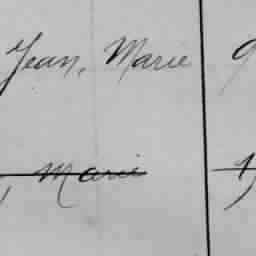 Jean, Marie 9
, Marie